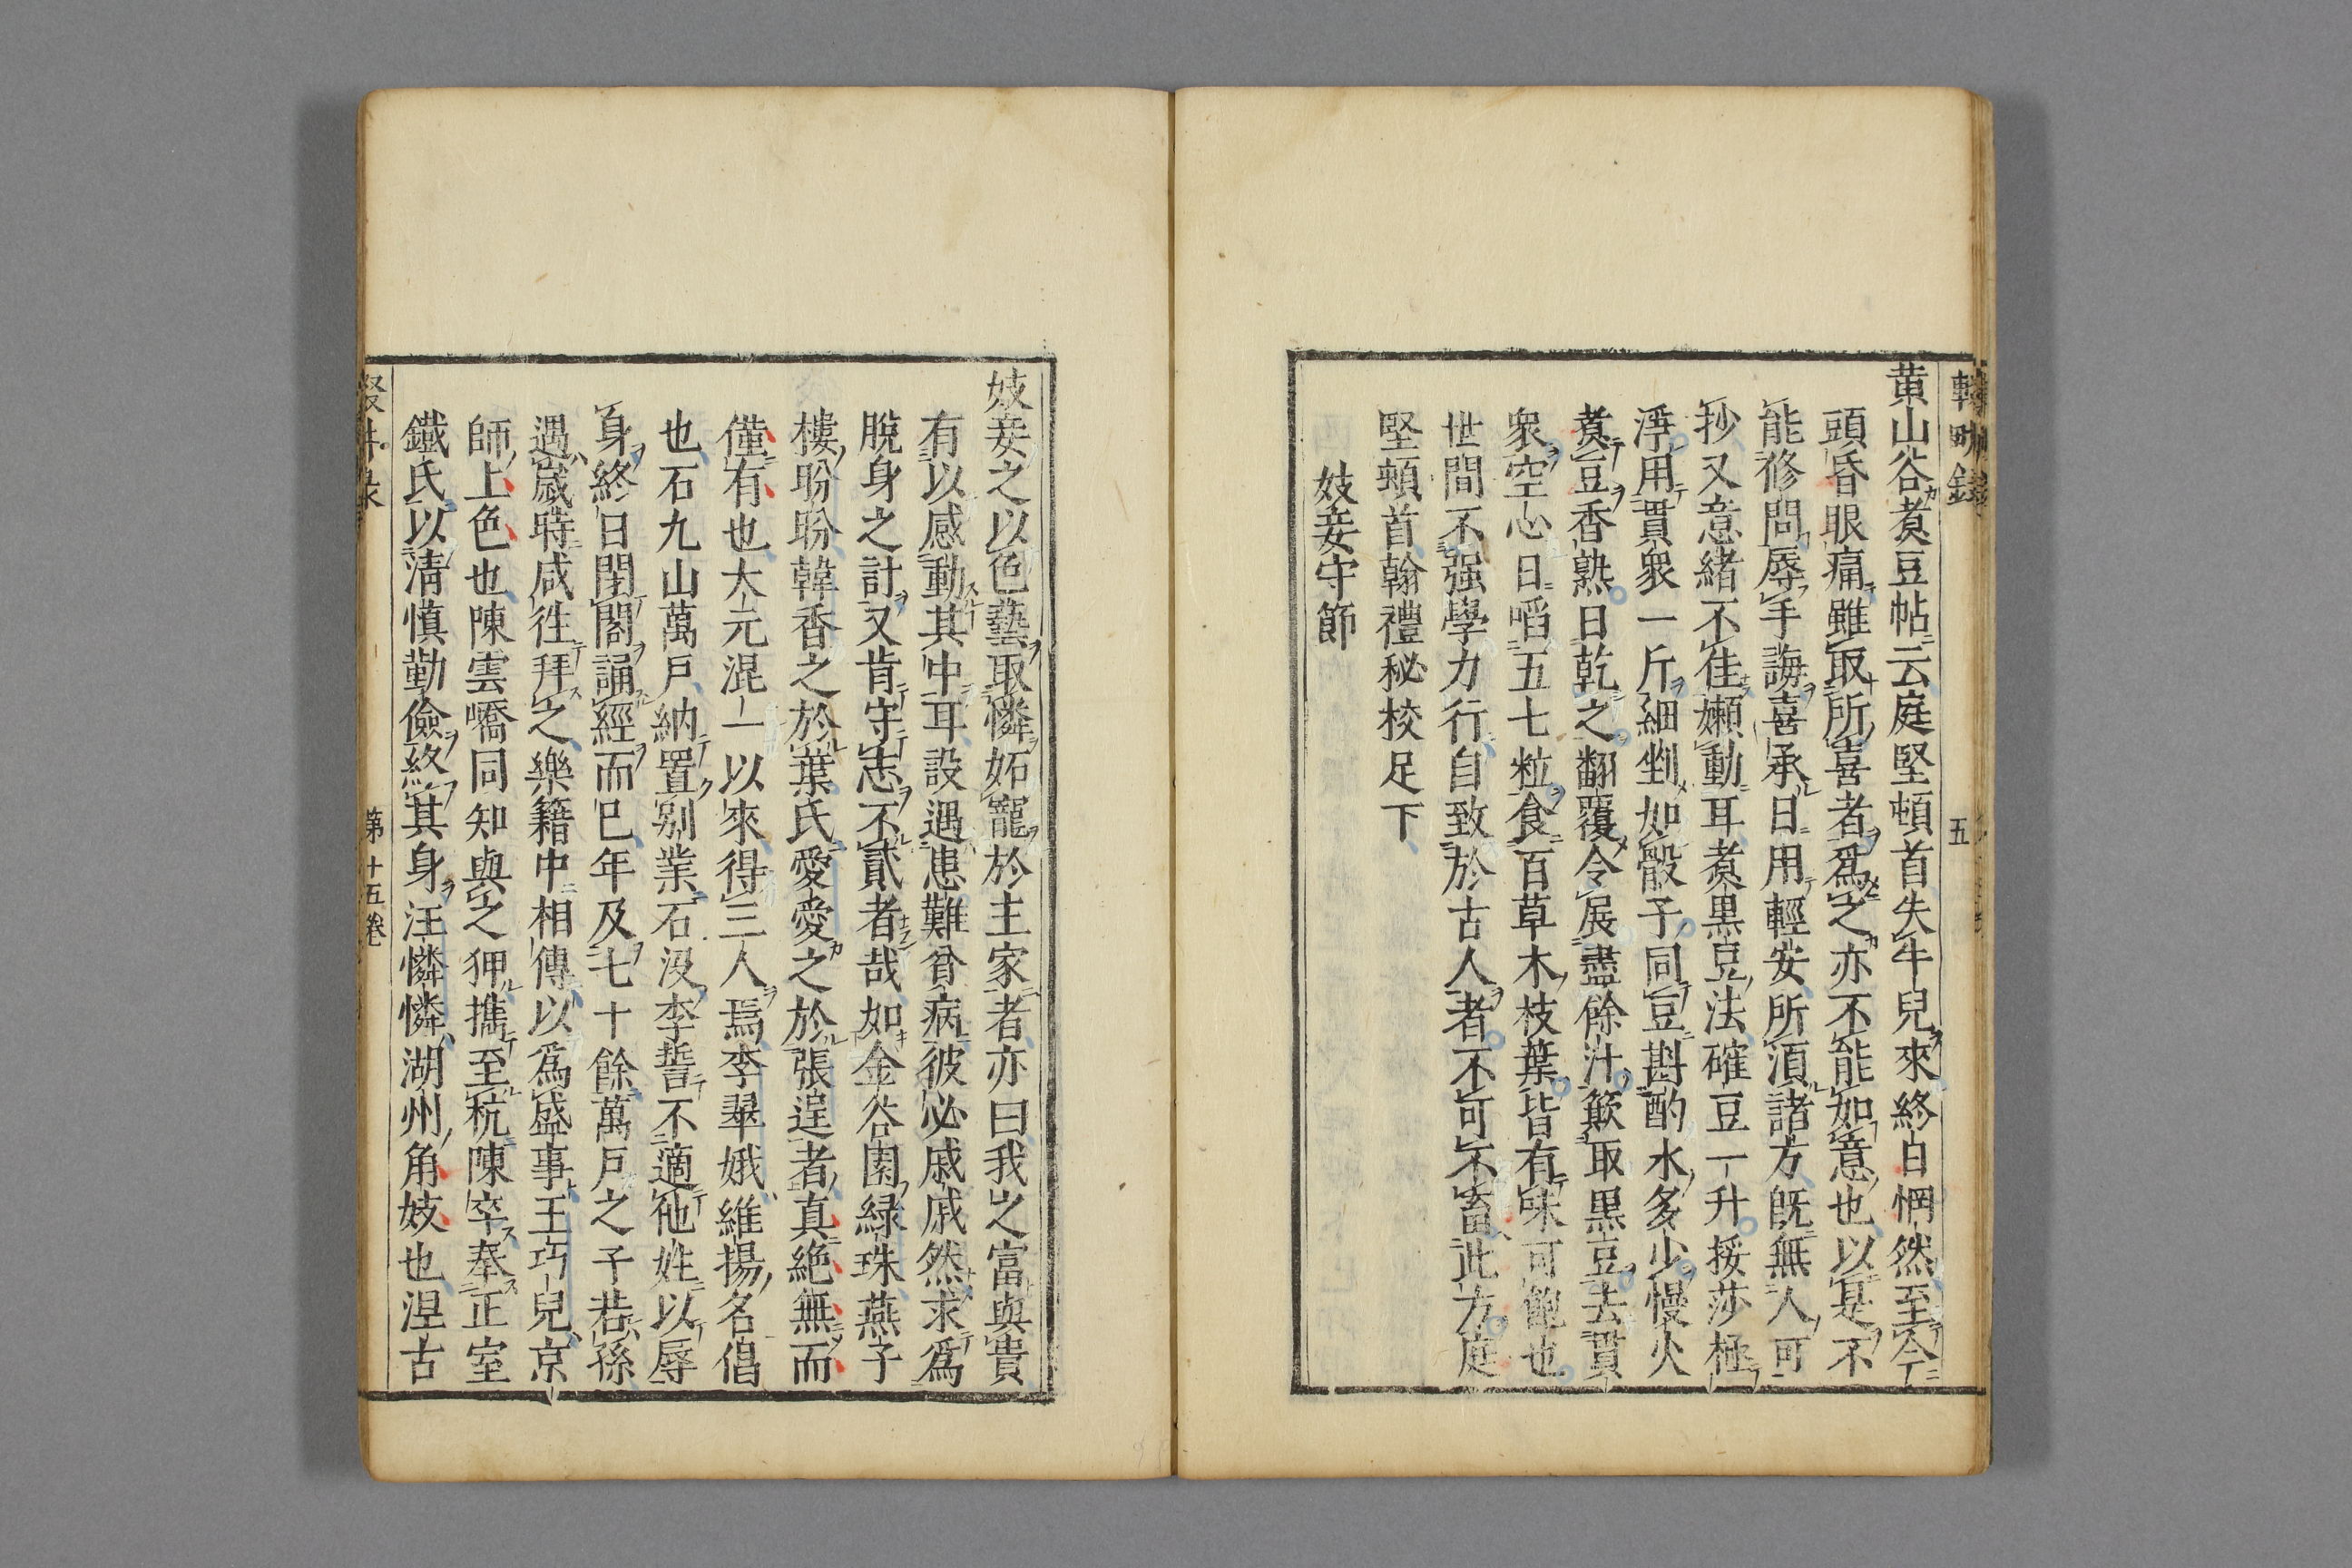 輟畊錄 五
黄山谷煑豆帖云庭堅頓首失牛兒來終日惘然至今
頭昏眼痛雖取所喜者爲之亦不能如意也以是不
能修問辱手誨喜承日用輕安所湏諸方旣無人可
抄又意緒不佳嬾動耳煑黒豆法確豆一升挼莎極
淨用貫衆一斤細剉如骰子同豆斟酌水多少慢火
煑豆香熟日乾之翻覆令展盡餘汁簸取黒豆去貫
衆空心日啗五七粒食百草木枝葉皆有味可飽也
世間不强學力行自致於古人者不可不畜此方庭
堅頓首翰禮秘校足下
妓妾守節
妓妾之以色藝取憐妬寵於主家者亦曰我之富與貴
有以感動其中耳設遇患難貧病彼必戚戚然求爲
脫身之計又肯守志不貳者哉如金谷園緑珠燕子
樓盼盼韓香之於葉氏愛愛之於張逞者真絶無而
僅有也大元混一以來得三人焉李翠娥維揚名倡
也石九山萬戸納置别業石没李誓不適他姓以辱
身終日閉閣誦經而已年及七十餘萬戸之子若孫
遇歳時咸徃拜之樂籍中相傳以爲盛事王巧兒京
師上色也陳雲嶠同知與之狎攜至杭陳卒奉正室
鐵氏以清慎勤儉終其身汪憐憐湖州角妓也涅古
第十五卷